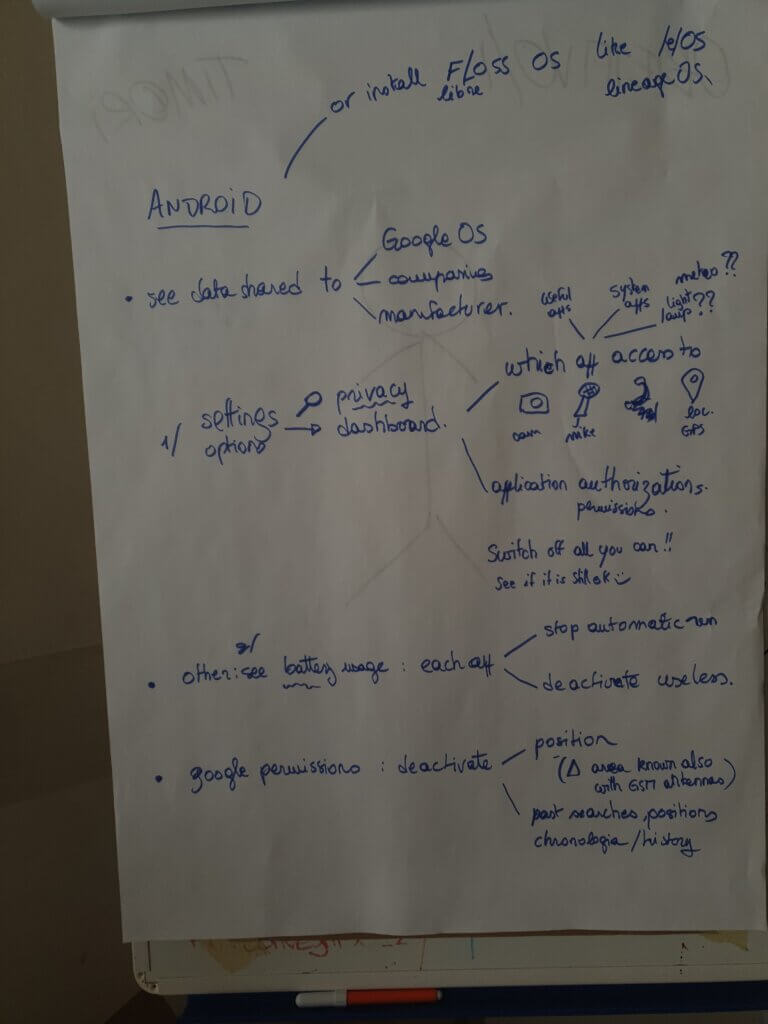 or install FLOSS OS like /e/OS
libre lineageOS
ANDROID
Google OS
• see data shared to companies
manufacturer.
useful apps
system apps
meteo??
light lamp??
which app access to
cam
mike
loc. GPS
1/ settings options → privacy dashboard.
application authorizations.
permissions.
Switch off all you can!!
see if it is still ok
2/
• other: see battery usage : each app
stop automatic run
deactivate useless.
• google permissions : deactivate
position
(Δ area known also
with GSM antennas)
past searches, positions
chronologia/history